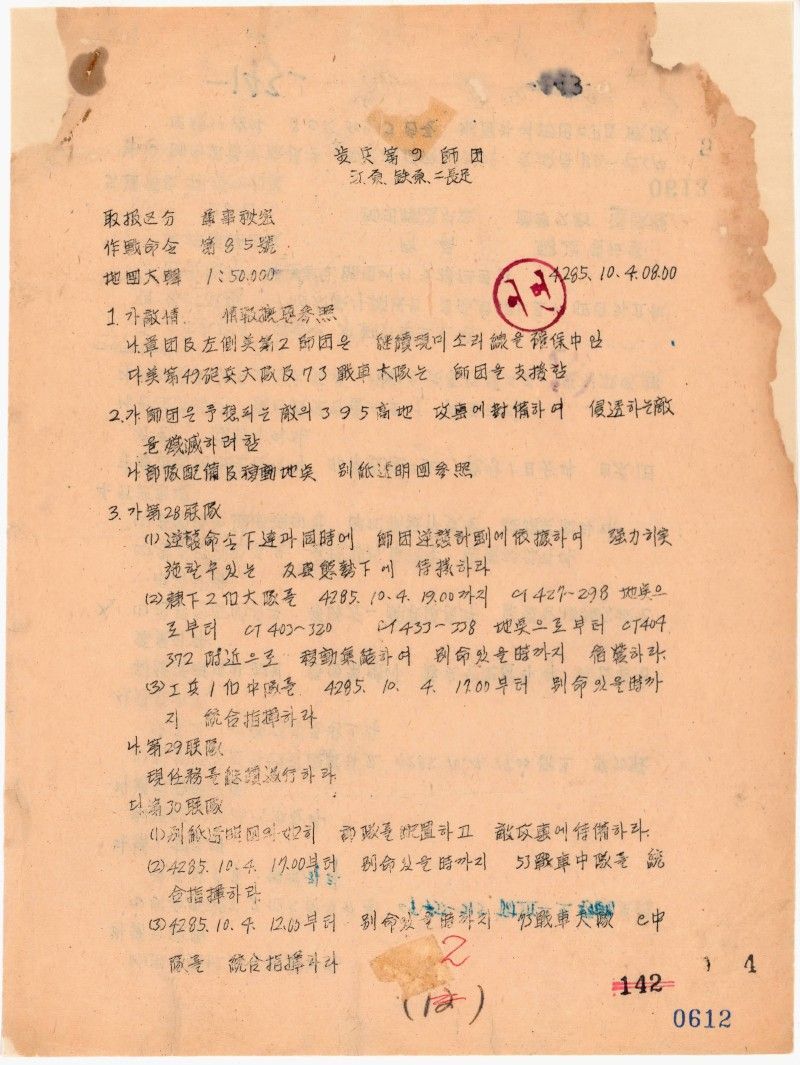 步兵第9師団
江原 鉄原 二長足
取扱区分 軍事秘密
作戰命令 第85號
地図大韓 1:50.000
4285.10.4.08.00
1.가敵情 情報概要參照
나.軍団及左側美第2師団은 継續現미조리線을 確保中임
다美第49砲兵大隊及73戰車大隊는 師団을 支援함
2.가師団은 予想되는 敵의 395高地 攻擊에 對備하여 侵透하는敵
을殲滅하려함
나部隊配備及移動地点 別紙透明図參照
3.가第28联隊
(1)逆襲命令下達과同時에 師団逆襲計劃에依據하여 强力히実
施할수있는 態勢下에 待機하라
(2)隸下2個大隊를 4285.10.4.19.00까지 CT427~298 地点으
로부터 CT403~320 CT433~338 地点으로부터 CT404
372 附近으로 移動集結하여 別命있을時까지 하라.
(3)工兵1個中隊를 4285.10.4.17.00부터 別命있을時까
지 統合指揮하라
나.第29联隊
現任務를継續遂行하라
다.第30联隊
(1)別紙透明図와如히 部隊를配置하고 敵攻擊에待備하라.
(2)4285.10.4.17.00부터 別命있을時까지 53戰車中隊를 統
合指揮하라
(3)4285.10.4.12.05부터 別命있을時까지 73戰車大隊 C中
隊를 統合指揮하라
2
(12)
142
4
0612